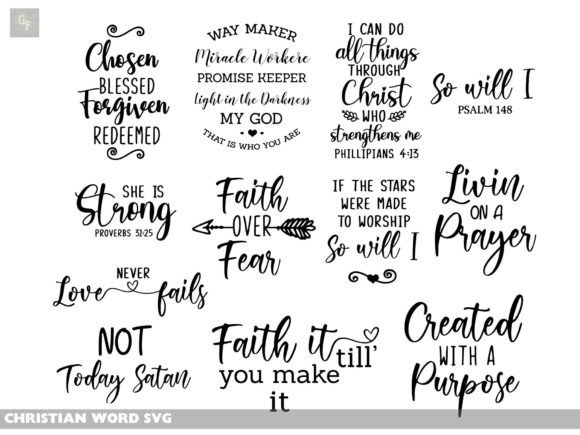 GF
Chosen
BLESSED
Forgiven
REDEEMED
WAY MAKER
Miracle Workere
PROMISE KEEPER
Light in the Darkness
MY GOD
THAT IS WHO YOU ARE
I CAN DO
all things
THROUGH
Christ
WHO
strengthens me
PHILLIPIANS 4:13
So will I
PSALM 148
SHE IS
Strong
PROVERBS 31:25
Faith
OVER
Fear
IF THE STARS
WERE MADE
TO WORSHIP
So will I
Livin
ON A
Prayer
NEVER
Love fails
NOT
Today Satan
Faith it till'
you make
it
Created
WITH A
Purpose
CHRISTIAN WORD SVG